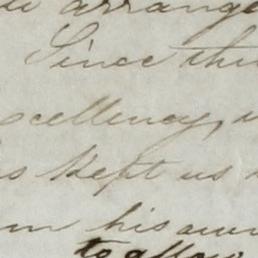 arrange
Since this
xcellency,
s kept us
his own
to allow